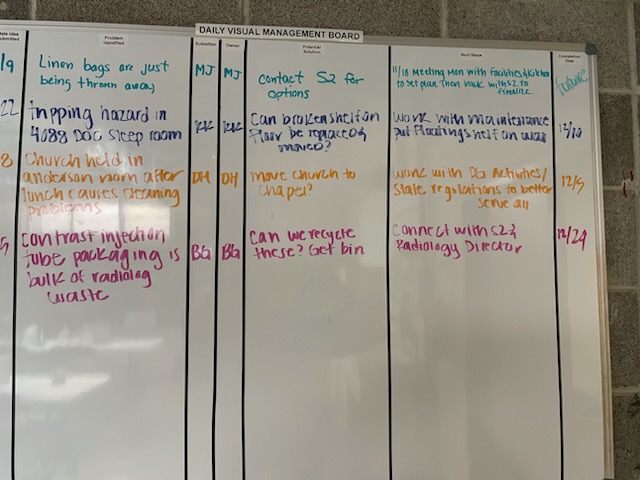 DAILY VISUAL MANAGEMENT BOARD
Date Idea
Submitted
Problem
Identified
Submitter
Owner
Potential
Solution
Next Steps
Completion
Date
/9
Linen bags are just
being thrown away
MJ
MJ
contact S2 for
options
11/18 Meeting Mon with Facilities &
to set plan. Then back with S2 to
finalize
future
22
tripping hazard in
4088 DOC Sleep room
Can broken shelf on
floor be replaced &
moved?
work with maintenance
put floating shelf on wall
12/10
8
Church held in
anderson room after
lunch causes cleaning
problems
DH
DH
move church to
chapel?
work with DG Activities/
State regulations to better
serve all
12/5
5
contrast injection
tube packaging is
bulk of radiolog
waste
BG
BG
Can we recycle
these? Get bin
Connect with S2 &
Radiology Director
12/29